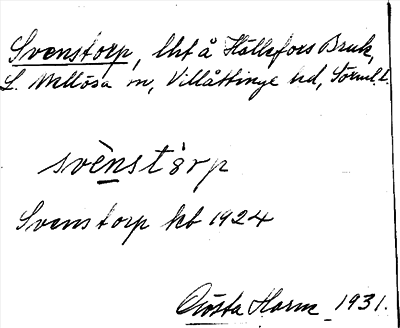 Svenstorp, lht å Hälleforss Bruk,
L. Mellösa sn, Villåttinge hd, Sörml. l.
svènstàrp
Svenstorp kb 1924
Gösta Harm 1931.